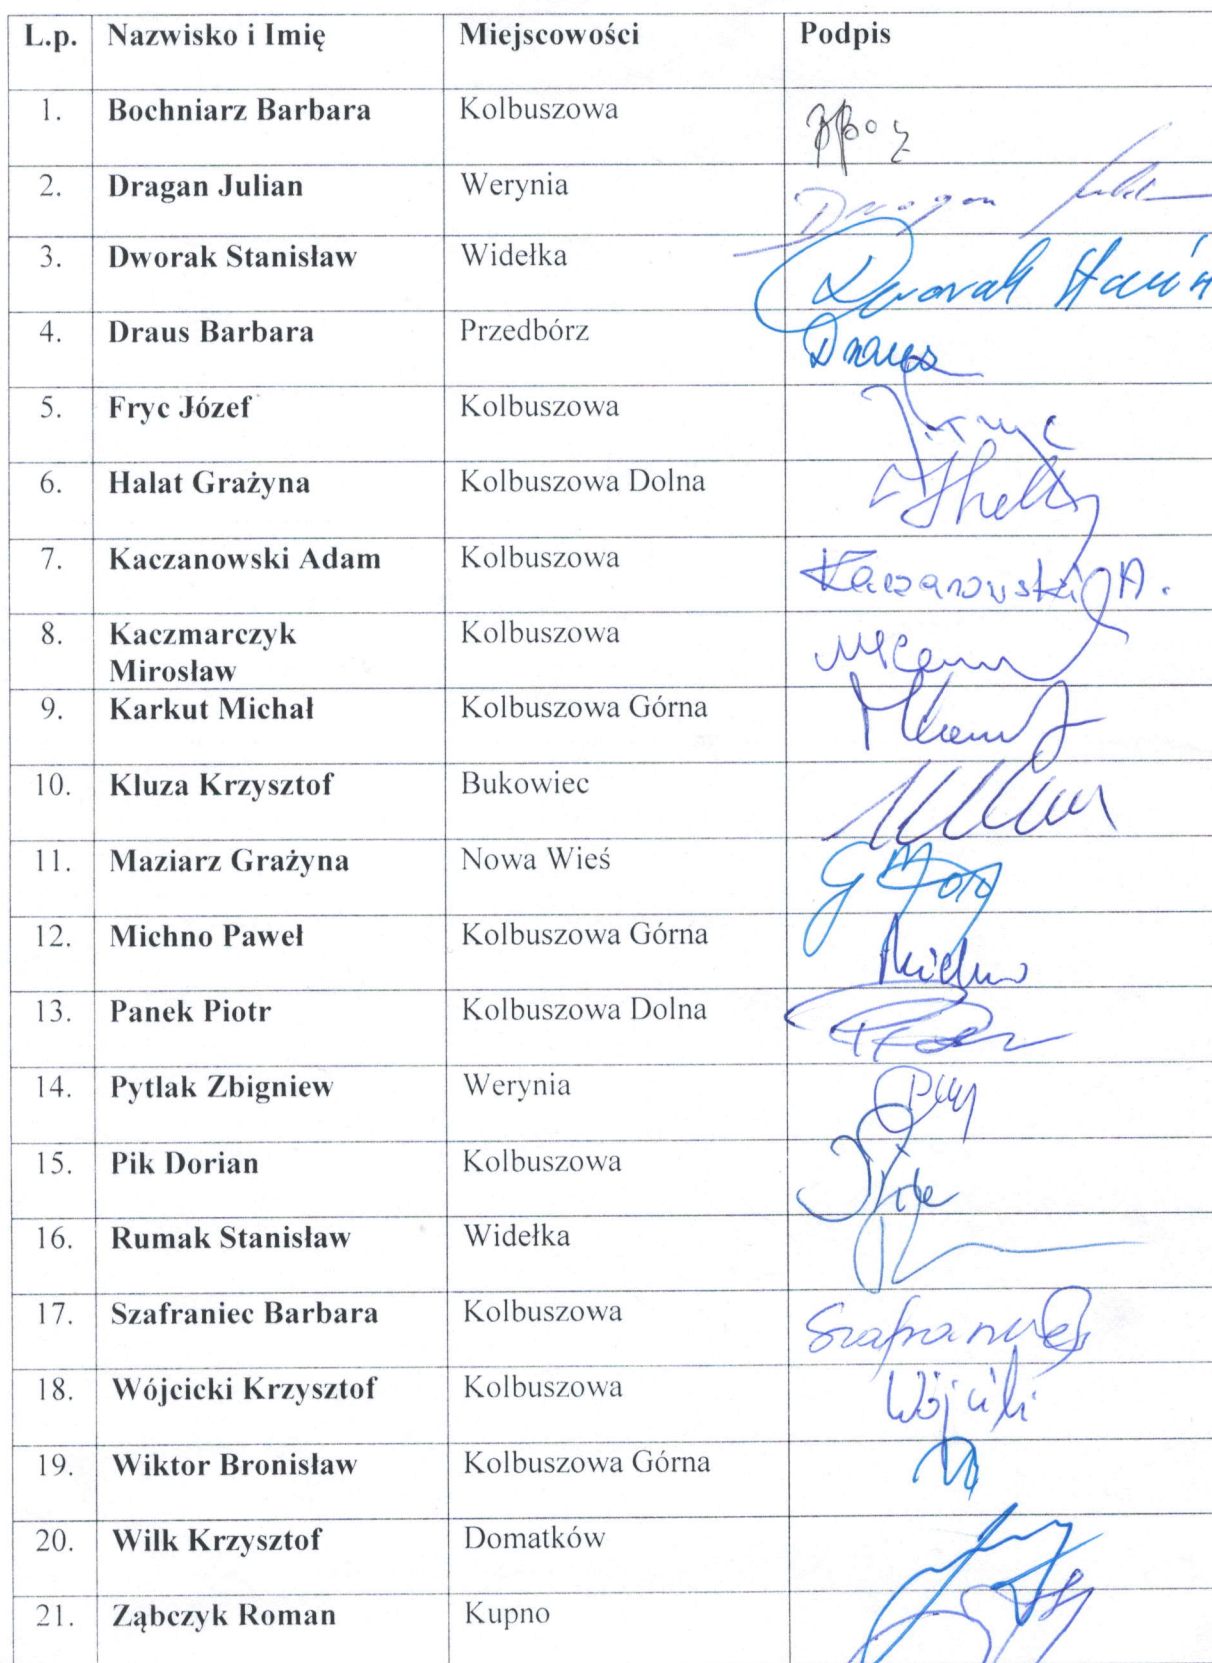 L.p. Nazwisko i Imię Miejscowości Podpis
1. Bochniarz Barbara Kolbuszowa
2. Dragan Julian Werynia Dragan
3. Dworak Stanisław Widełka Dworak
4. Draus Barbara Przedbórz Draus
5. Fryc Józef Kolbuszowa
6. Halat Grażyna Kolbuszowa Dolna
7. Kaczanowski Adam Kolbuszowa Kaczanowski A.
8. Kaczmarczyk Kolbuszowa
Mirosław
9. Karkut Michał Kolbuszowa Górna
10. Kluza Krzysztof Bukowiec
11. Maziarz Grażyna Nowa Wieś
12. Michno Paweł Kolbuszowa Górna Michno
13. Panek Piotr Kolbuszowa Dolna
14. Pytlak Zbigniew Werynia
15. Pik Dorian Kolbuszowa
16. Rumak Stanisław Widełka
17. Szafraniec Barbara Kolbuszowa Szafraniec
18. Wójcicki Krzysztof Kolbuszowa Wójcicki
19. Wiktor Bronisław Kolbuszowa Górna
20. Wilk Krzysztof Domatków
21. Ząbczyk Roman Kupno